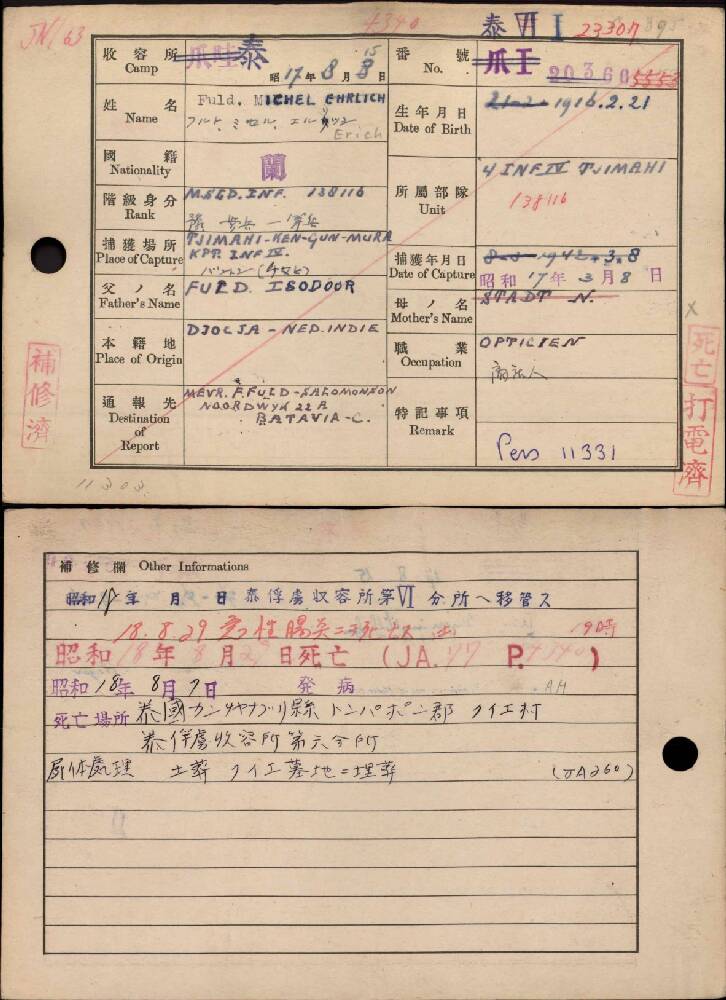 JN/63
4340
泰 VI I
23307
収容所
Camp
爪哇 泰
昭17年8月15日
番號
No.
爪 I 20366 5553
姓名
Name
Fuld. MICHEL EHRLICH
フルト、ミセル、エルリッツ
Erich
生年月日
Date of Birth
21-2- 1916.2.21
國籍
Nationality
蘭
階級身分
Rank
MSGD.INF. 138116
所屬部隊
Unit
4 INF IV TJIMAHI
138116
捕獲場所
Place of Capture
TJIMAHI-KEN-GUN-MURA
KPT. INF IV.
捕獲年月日
Date of Capture
8-3-1942.3.8
昭和17年3月8日
父ノ名
Father's Name
FULD. ISODOOR
母ノ名
Mother's Name
STADT N.
本籍地
Place of Origin
DJOCJA - NED.INDIE
職業
Occupation
OPTICIEN
通報先
Destination of Report
MEVR. F.FULD-SALOMONSON
NOORDWYK 22 A
BATAVIA-C.
特記事項
Remark
Pers 11331
補修濟
死亡
打電濟
11303
補修欄 Other Informations
昭和18年 月 日泰俘虜収容所第VI分所ヘ移管ス
18.8.29 急性腸炎ニテ死亡ス
19時
昭和18年8月29日死亡 (JA.47 P.4340)
昭和18年8月9日 発病
AH
死亡場所 泰國カンチャナブリ縣 トンパポン郡 クイエ村
泰俘虜收容所第六分所
屍体處理 土葬 クイエ墓地ニ埋葬 (JA260)